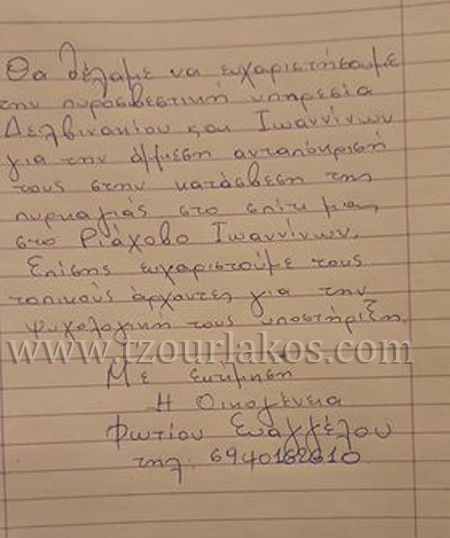 Θα θέλαμε να ευχαριστήσουμε
την πυροσβεστική υπηρεσία
Δελβινακίου και Ιωαννίνων
για την άμμεση ανταπόκρισή
τους στην κατάσβεση της
πυρκαγιάς στο σπίτι μας,
στο Ριάχοβο Ιωαννίνων.
Επίσης ευχαριστούμε τους
τοπικούς άρχοντες για την
ψυχολογική τους υποστήριξη.
www.tzourlakos.com
Με εκτίμηση
Η Οικογένεια
Φωτίου Ευαγγέλου
τηλ. 6940182610